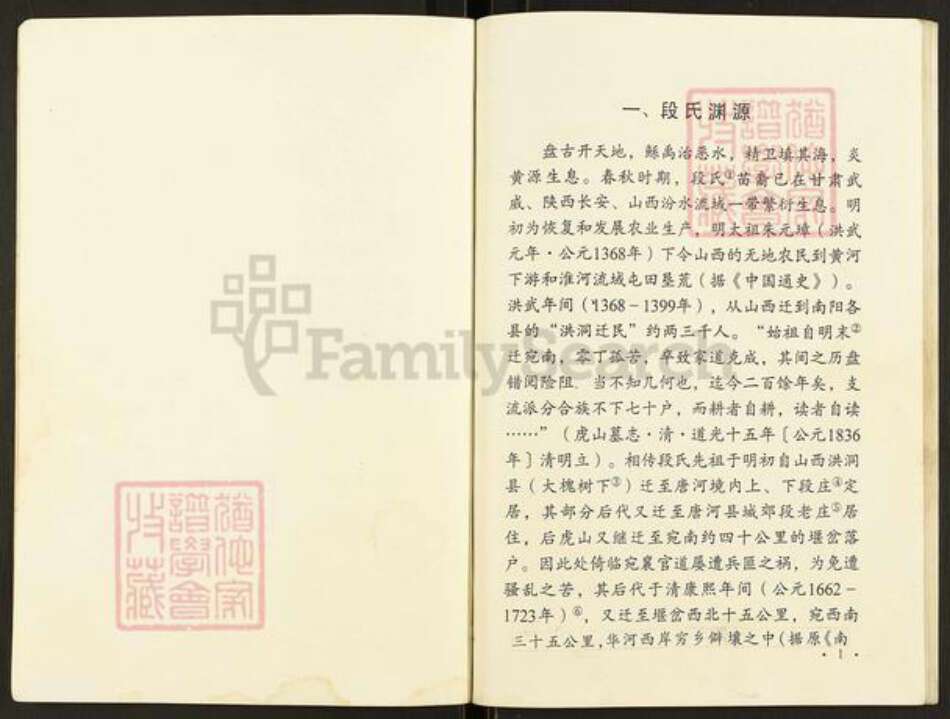 一、段氏渊源
盘古开天地，鲧禹治恶水，精卫填其海，炎
黄源生息。春秋时期，段氏①苗裔已在甘肃武
威、陕西长安、山西汾水流域一带繁衍生息。明
初为恢复和发展农业生产，明太祖朱元璋（洪武
元年·公元1368年）下令山西的无地农民到黄河
下游和淮河流域屯田垦荒（据《中国通史》）。
洪武年间（1368－1399年），从山西迁到南阳各
县的“洪洞迁民”约两三千人。“始祖自明末②
迁宛南，零丁孤苦，卒致家道克成，其间之历盘
错阅险阻，当不知几何也，迄今二百馀年矣，支
流派分合族不下七十户，而耕者自耕，读者自读
……”（虎山墓志·清·道光十五年〔公元1836
年〕清明立）。相传段氏先祖于明初自山西洪洞
县（大槐树下③）迁至唐河境内上、下段庄④定
居，其部分后代又迁至唐河县城郊段老庄⑤居
住，后虎山又继迁至宛南约四十公里的堰岔落
户。因此处倚临宛襄官道屡遭兵匪之祸，为免遭
骚乱之苦，其后代于清康熙年间（公元1662－
1723年）⑥，又迁至堰岔西北十五公里，宛西南
三十五公里，华河西岸穷乡僻壤之中（据原《南
·1·
FamilySearch